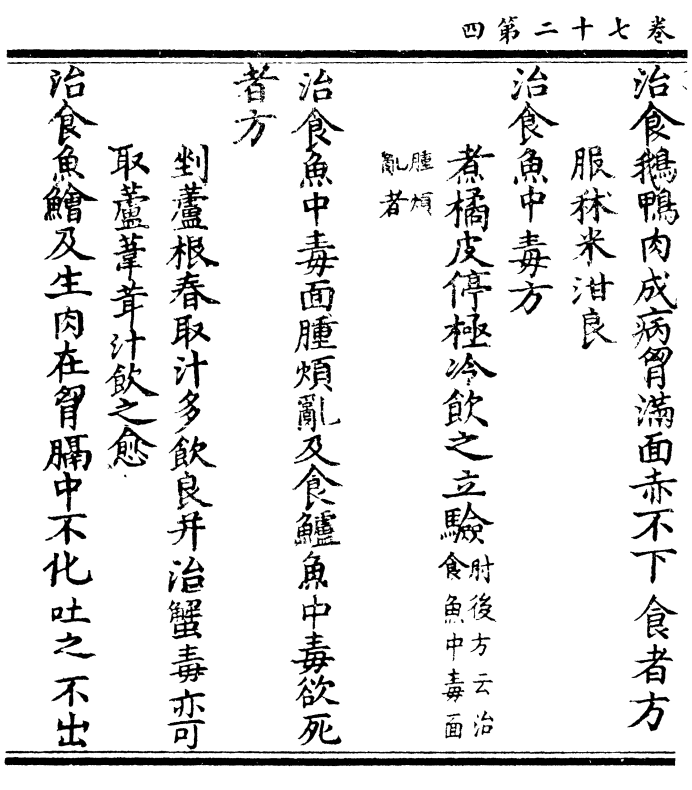 卷七十二第四
治食鵝鴨肉成病胷滿面赤不下食者方
服秫米泔良
治食魚中毒方
煮橘皮停極冷飲之立驗肘後方云治食魚中毒面
腫煩亂者
治食魚中毒面腫煩亂及食鱸魚中毒欲死
者方
剉蘆根舂取汁多飲良并治蟹毒亦可
取蘆葦茸汁飲之愈
治食魚鱠及生肉在胷膈中不化吐之不出